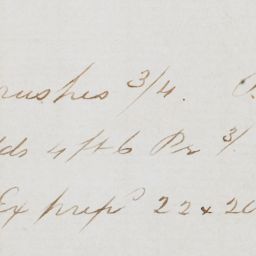 rushes 3/4.
ds 4ft6 Pr 3/
Ex prep 22 x 20